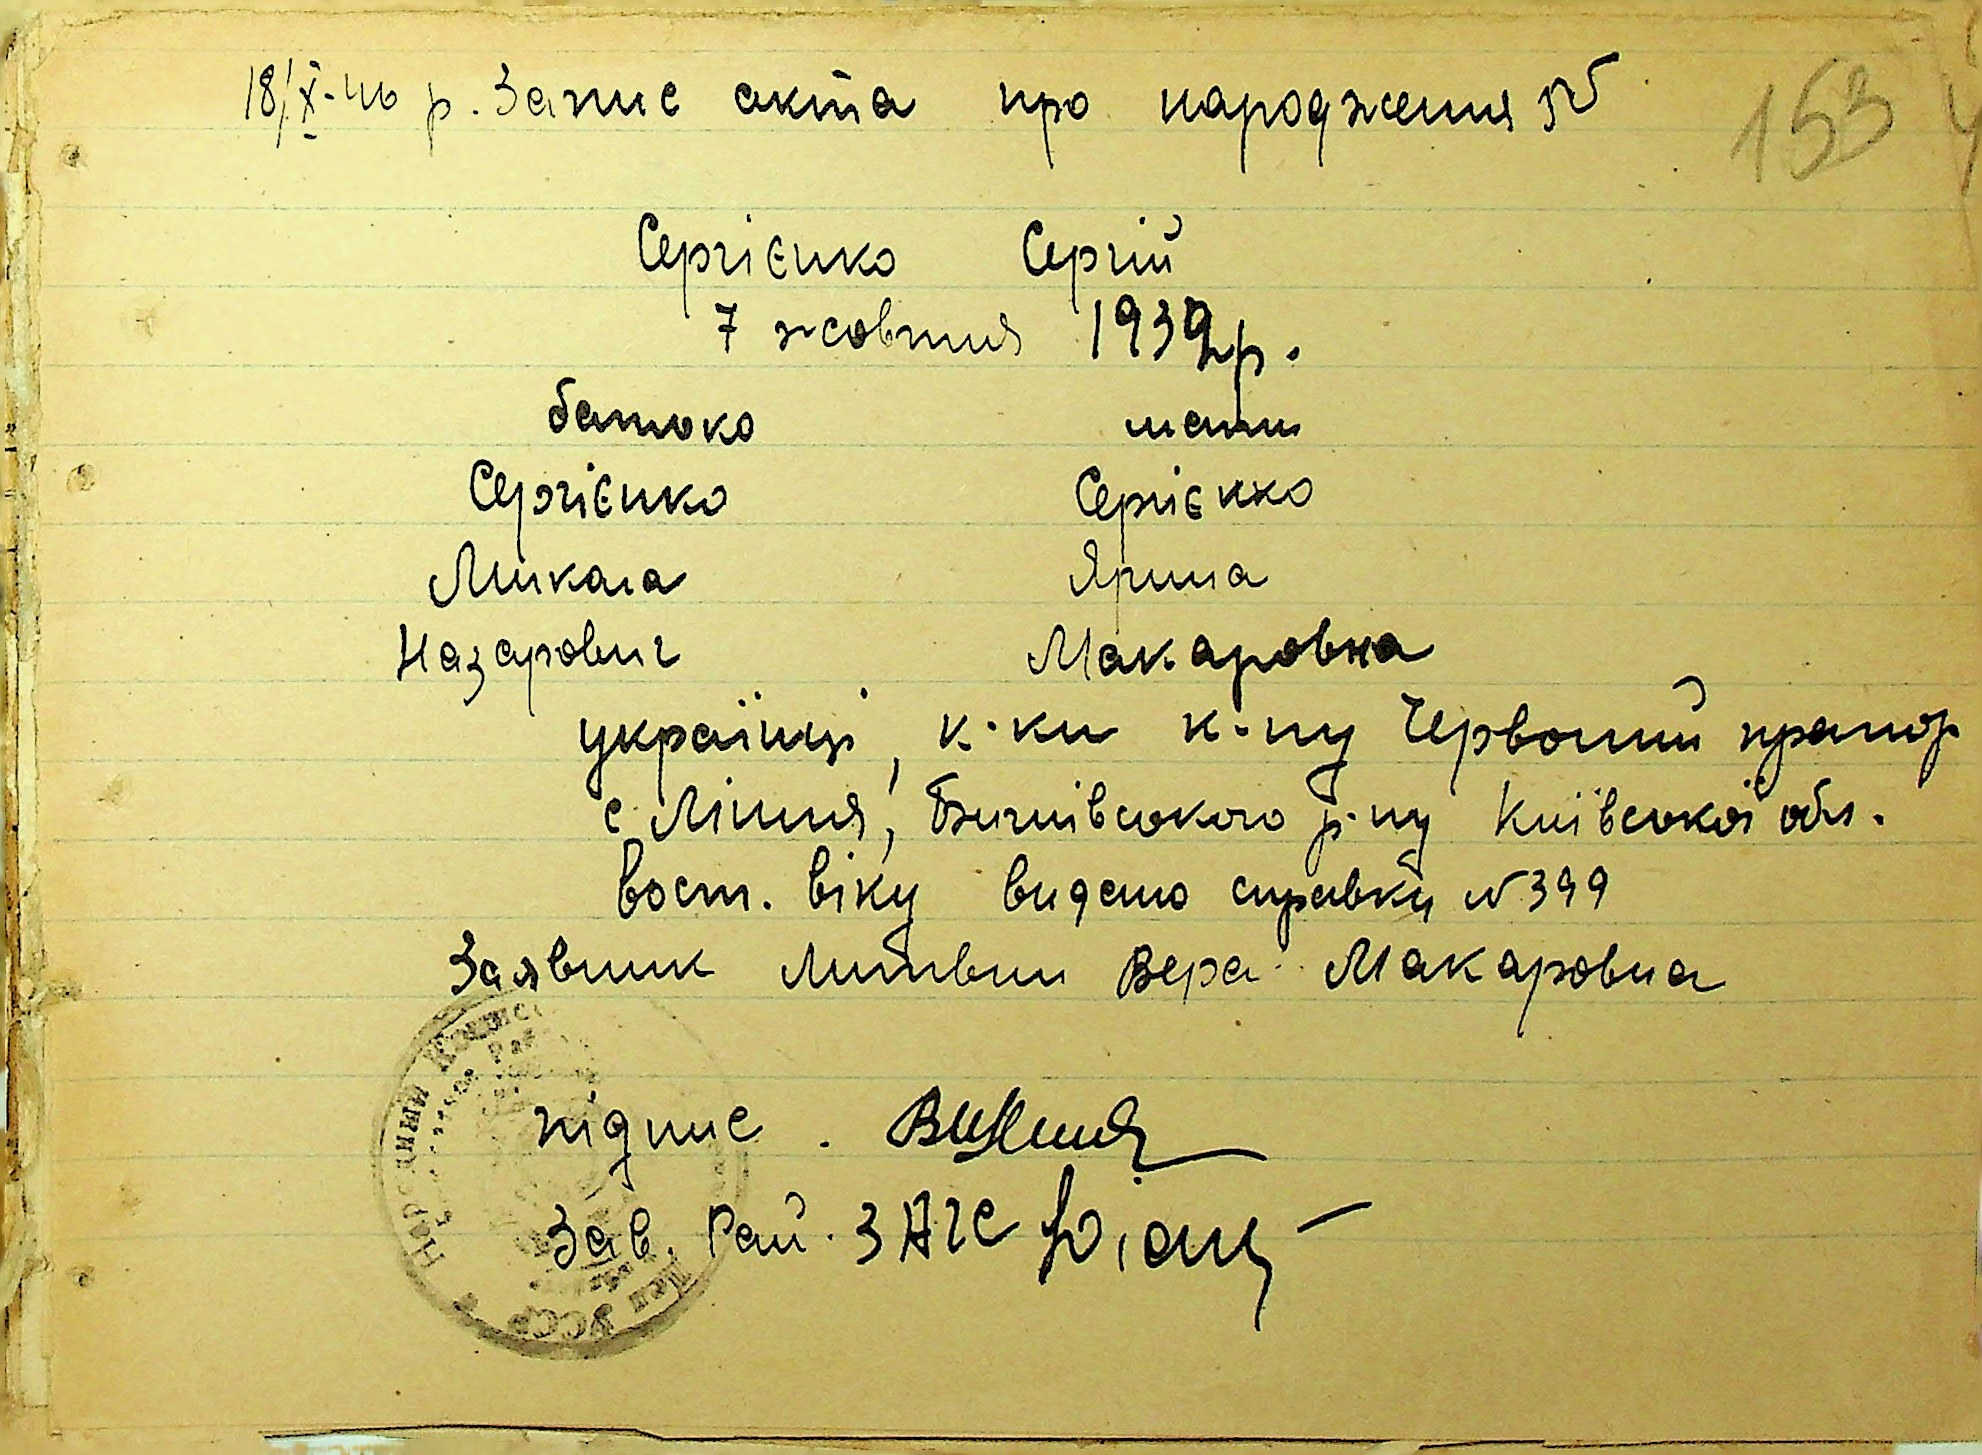 18/X-46 р. Запис акта про народження №
153
Сергієнко Сергій
7 жовтня 1939 р.
батько мати
Сергієнко Сергієнко
Микола Ярина
Назарович Макаровна
українці, к-ки к-пу Червоний прапор
с. Липня, Бишівського р-ну Київської обл.
вост. віку видано справку № 399
Заявник Литвин Вера Макаровна
підпис.
Зав. Рай. ЗАГС
УССР